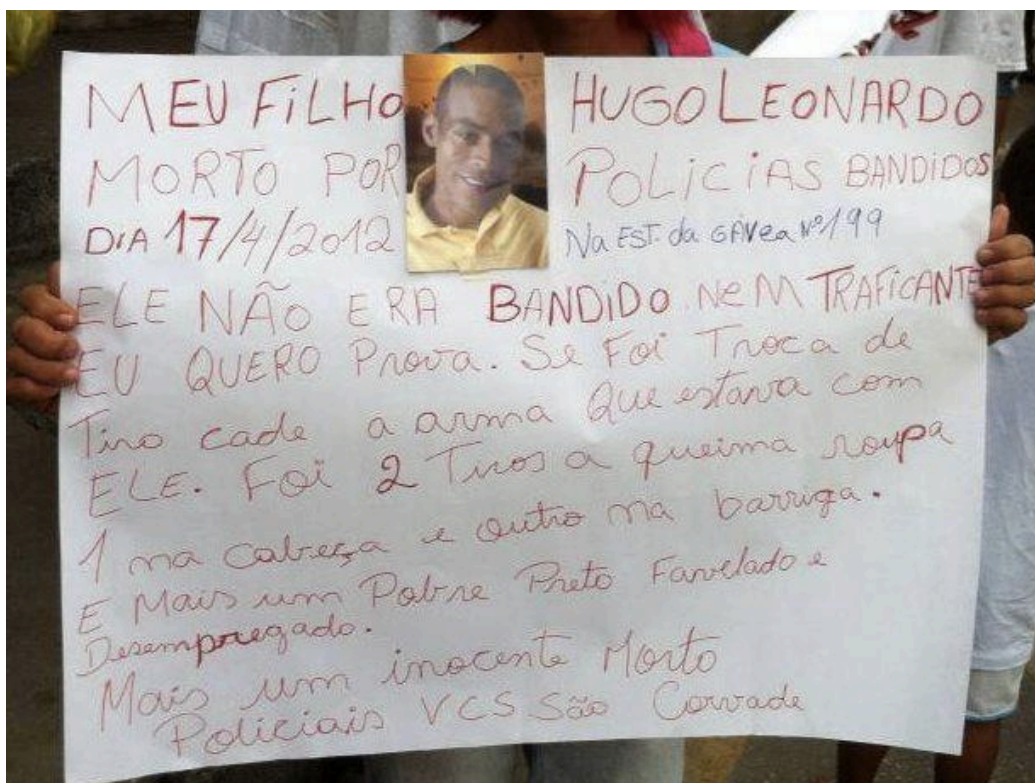 MEU FiLHO HUGO LEONARDO
MORTO POR POLICiAS BANDIDOS
DIA 17/4/2012 Na EST. da GÁVea Nº 199
ELE NÃO ERA BANDIDO NeM TRAFICANTE
EU QUERO Prova. Se Foi Troca de
Tiro cade a arma Que estava com
ELE. Foi 2 Tiros a queima roupa
1 na cabeça e outro na barriga.
E Mais um Pobre Preto Favelado e
Desempregado.
Mais um inocente Morto
Policiais VCS São Corvade